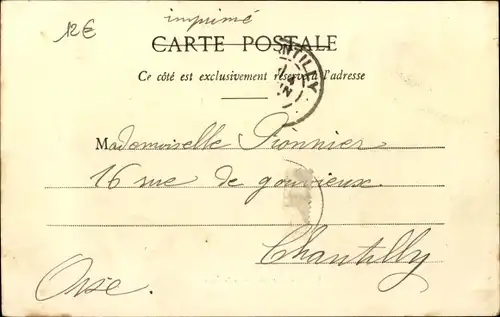 12€
imprimé
CARTE POSTALE
Ce côté est exclusivement réservé à l'adresse
NTILLY
Mademoiselle Pionnier
16 rue de gouvieux.
Chantilly
Oise.